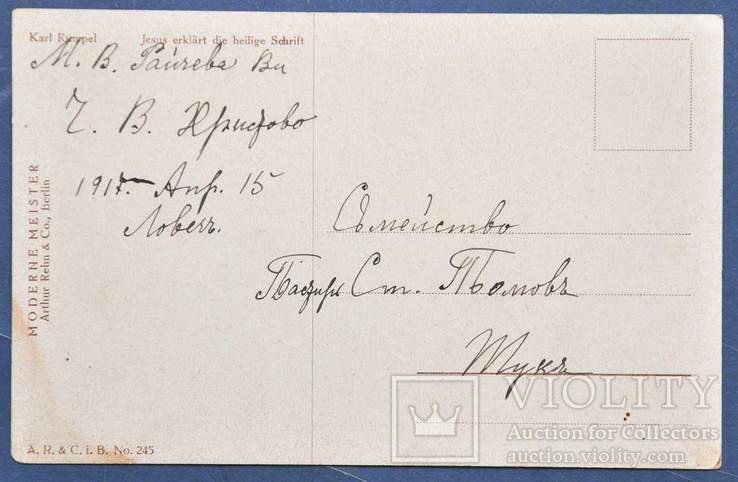 Karl Rumpel Jesus erklärt die heilige Schrift
М. В. Райчева Ви
Ч. В. Христово
1917 Апр. 15
Ловечъ.
Съмейство
Пастиръ Ст. Поповъ
Тукъ
MODERNE MEISTER
Arthur Rehn & Co., Berlin
A. R. & C. i. B. No. 245
VIOLITY
Auction for Collectors
auction.violity.com